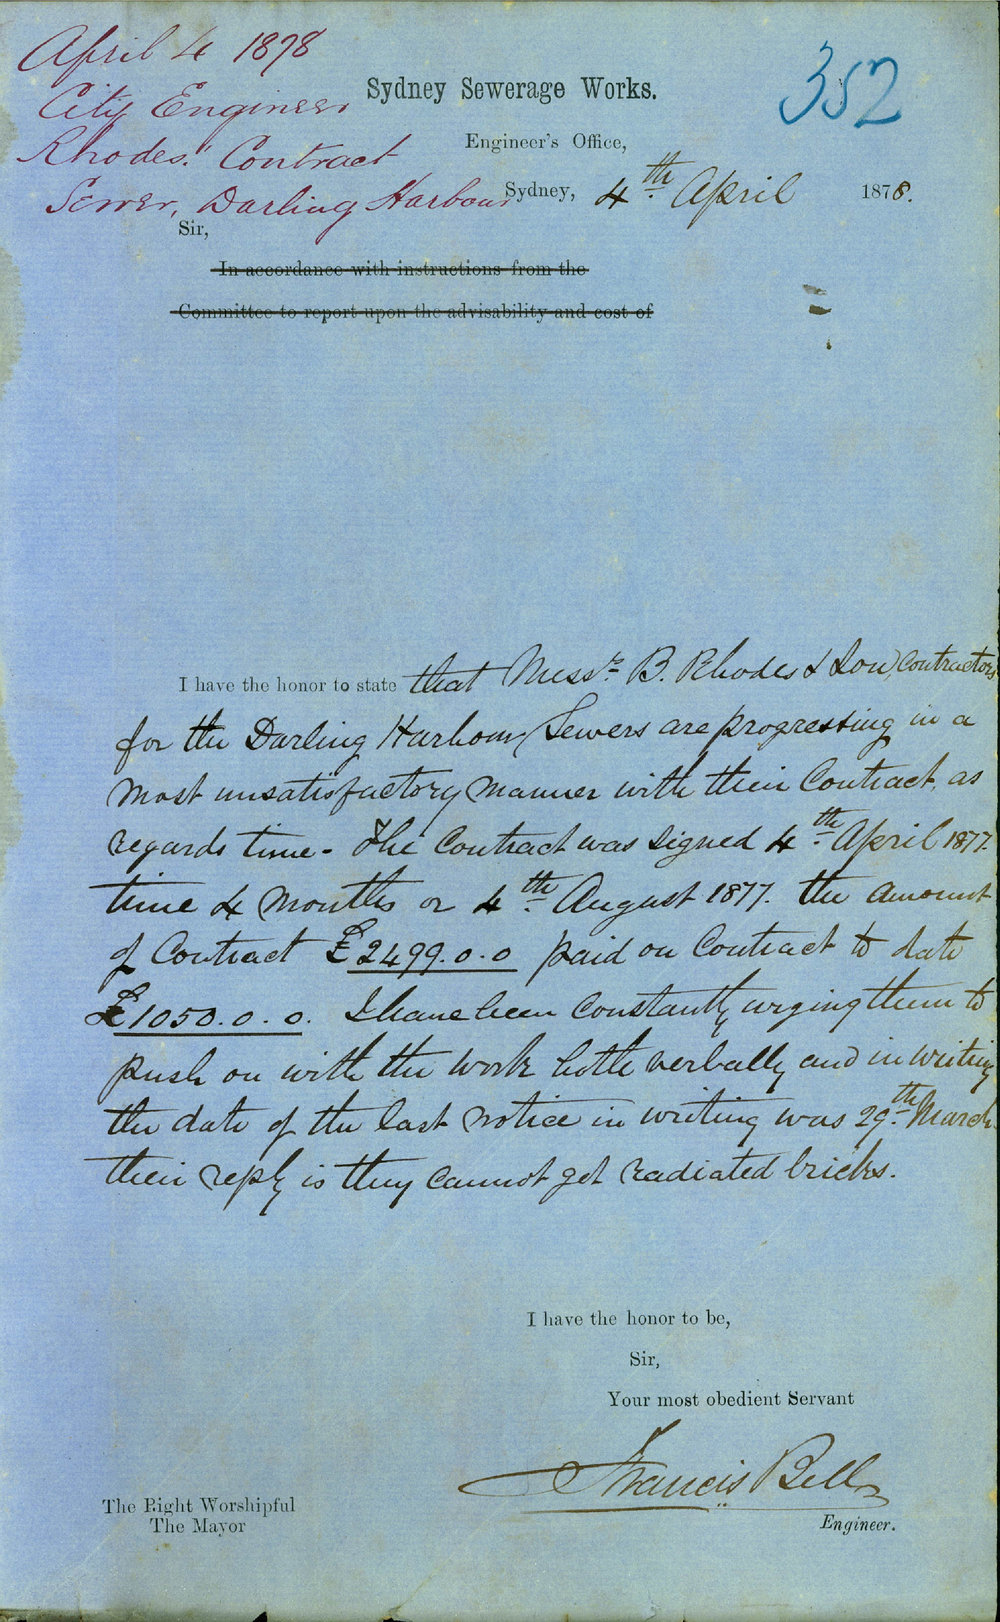 April 4 1878
City Engineer
Rhodes' Contract
Sewer, Darling Harbour
352
Sydney Sewerage Works.
Engineer's Office,
Sydney, 4th April 1878.
Sir,
In accordance with instructions from the
Committee to report upon the advisability and cost of
I have the honor to state that Messrs B. Rhodes & Son, Contractors
for the Darling Harbour Sewers are progressing in a
most unsatisfactory manner with their Contract, as
regards time - The Contract was signed 4th April 1877.
time 4 months or 4th August 1877. the amount
of Contract £2499.0.0 paid on Contract to date
£1050.0.0. I have been constantly urging them to
push on with the work both verbally and in writing
the date of the last notice in writing was 29th March
their reply is they cannot get radiated bricks.
I have the honor to be,
Sir,
Your most obedient Servant
Francis Bell
Engineer.
The Right Worshipful
The Mayor